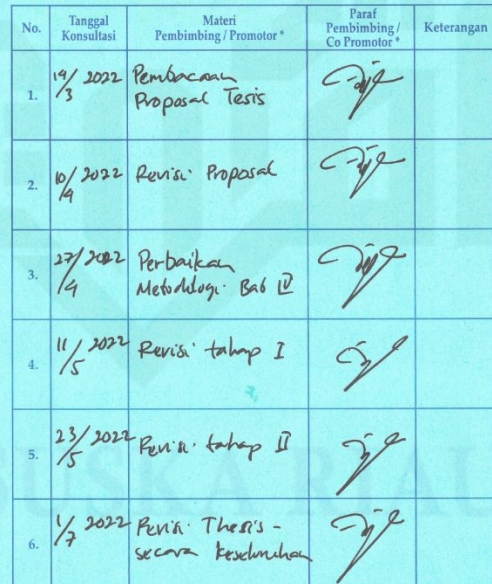 No.
Tanggal
Konsultasi
Materi
Pembimbing / Promotor *
Paraf
Pembimbing /
Co Promotor *
Keterangan
1.
14/3 2022
Pembacaan
Proposal Tesis
2.
10/4 2022
Revisi Proposal
3.
27/4 2022
Perbaikan
Metodologi Bab IV
4.
11/5 2022
Revisi tahap I
5.
23/5 2022
Revisi tahap II
6.
1/7 2022
Revisi Thesis -
secara keseluruhan
SUSKA RIAU